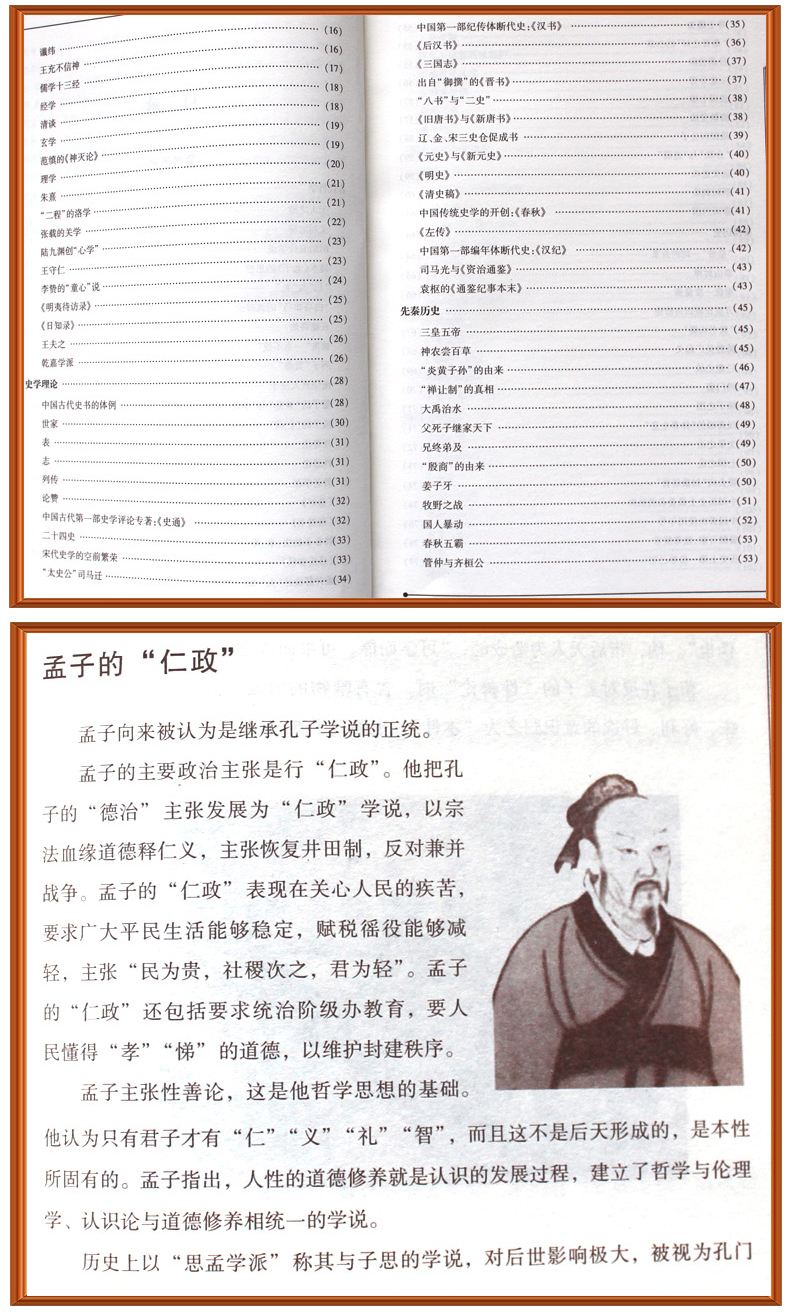 谶纬 (16)
王充不信神 (16)
儒学十三经 (17)
经学 (18)
清谈 (18)
玄学 (19)
范缜的《神灭论》 (19)
理学 (20)
朱熹 (21)
“二程”的洛学 (21)
张载的关学 (22)
陆九渊创“心学” (23)
王守仁 (23)
李贽的“童心”说 (24)
《明夷待访录》 (25)
《日知录》 (25)
王夫之 (26)
乾嘉学派 (26)
史学理论 (28)
中国古代史书的体例 (28)
世家 (30)
表 (31)
志 (31)
列传 (31)
论赞 (32)
中国古代第一部史学评论专著:《史通》 (32)
二十四史 (33)
宋代史学的空前繁荣 (33)
“太史公”司马迁 (34)
中国第一部纪传体断代史:《汉书》 (35)
《后汉书》 (36)
《三国志》 (37)
出自“御撰”的《晋书》 (37)
“八书”与“二史” (38)
《旧唐书》与《新唐书》 (38)
辽、金、宋三史仓促成书 (39)
《元史》与《新元史》 (40)
《明史》 (40)
《清史稿》 (41)
中国传统史学的开创:《春秋》 (41)
《左传》 (42)
中国第一部编年体断代史:《汉纪》 (42)
司马光与《资治通鉴》 (43)
袁枢的《通鉴纪事本末》 (43)
先秦历史 (45)
三皇五帝 (45)
神农尝百草 (45)
“炎黄子孙”的由来 (46)
“禅让制”的真相 (47)
大禹治水 (48)
父死子继家天下 (49)
兄终弟及 (49)
“殷商”的由来 (50)
姜子牙 (50)
牧野之战 (51)
国人暴动 (52)
春秋五霸 (53)
管仲与齐桓公 (53)
孟子的“仁政”
孟子向来被认为是继承孔子学说的正统。
孟子的主要政治主张是行“仁政”。他把孔
子的“德治”主张发展为“仁政”学说，以宗
法血缘道德释仁义，主张恢复井田制，反对兼并
战争。孟子的“仁政”表现在关心人民的疾苦，
要求广大平民生活能够稳定，赋税徭役能够减
轻，主张“民为贵，社稷次之，君为轻”。孟子
的“仁政”还包括要求统治阶级办教育，要人
民懂得“孝”“悌”的道德，以维护封建秩序。
孟子主张性善论，这是他哲学思想的基础。
他认为只有君子才有“仁”“义”“礼”“智”，而且这不是后天形成的，是本性
所固有的。孟子指出，人性的道德修养就是认识的发展过程，建立了哲学与伦理
学、认识论与道德修养相统一的学说。
历史上以“思孟学派”称其与子思的学说，对后世影响极大，被视为孔门